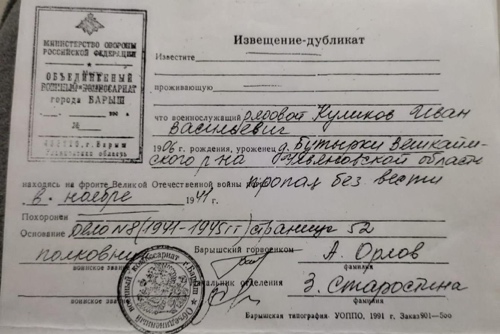 МИНИСТЕРСТВО ОБОРОНЫ
РОССИЙСКОЙ ФЕДЕРАЦИИ
ОБЪЕДИНЕННЫЙ
ВОЕННЫЙ КОМИССАРИАТ
города БАРЫШ
г. Барыш
Ульяновская область
Извещение-дубликат
Известите
проживающую
что военнослужащий рядовой Куликов Иван
Васильевич
1906 г. рождения, уроженец д. Бутырки Вешкайм-
ского р-на Ульяновской области
находясь на фронте Великой Отечественной войны пропал без вести
в ноябре 1941 г.
Похоронен
Основание Дело №8 (1941-1945гг) страница 52
полковник Барышский горвоенком А. Орлов
воинское звание фамилия
Начальник отделения З. Старостина
воинское звание фамилия
Барышская типография УОППО, 1991 г. Заказ 901—500